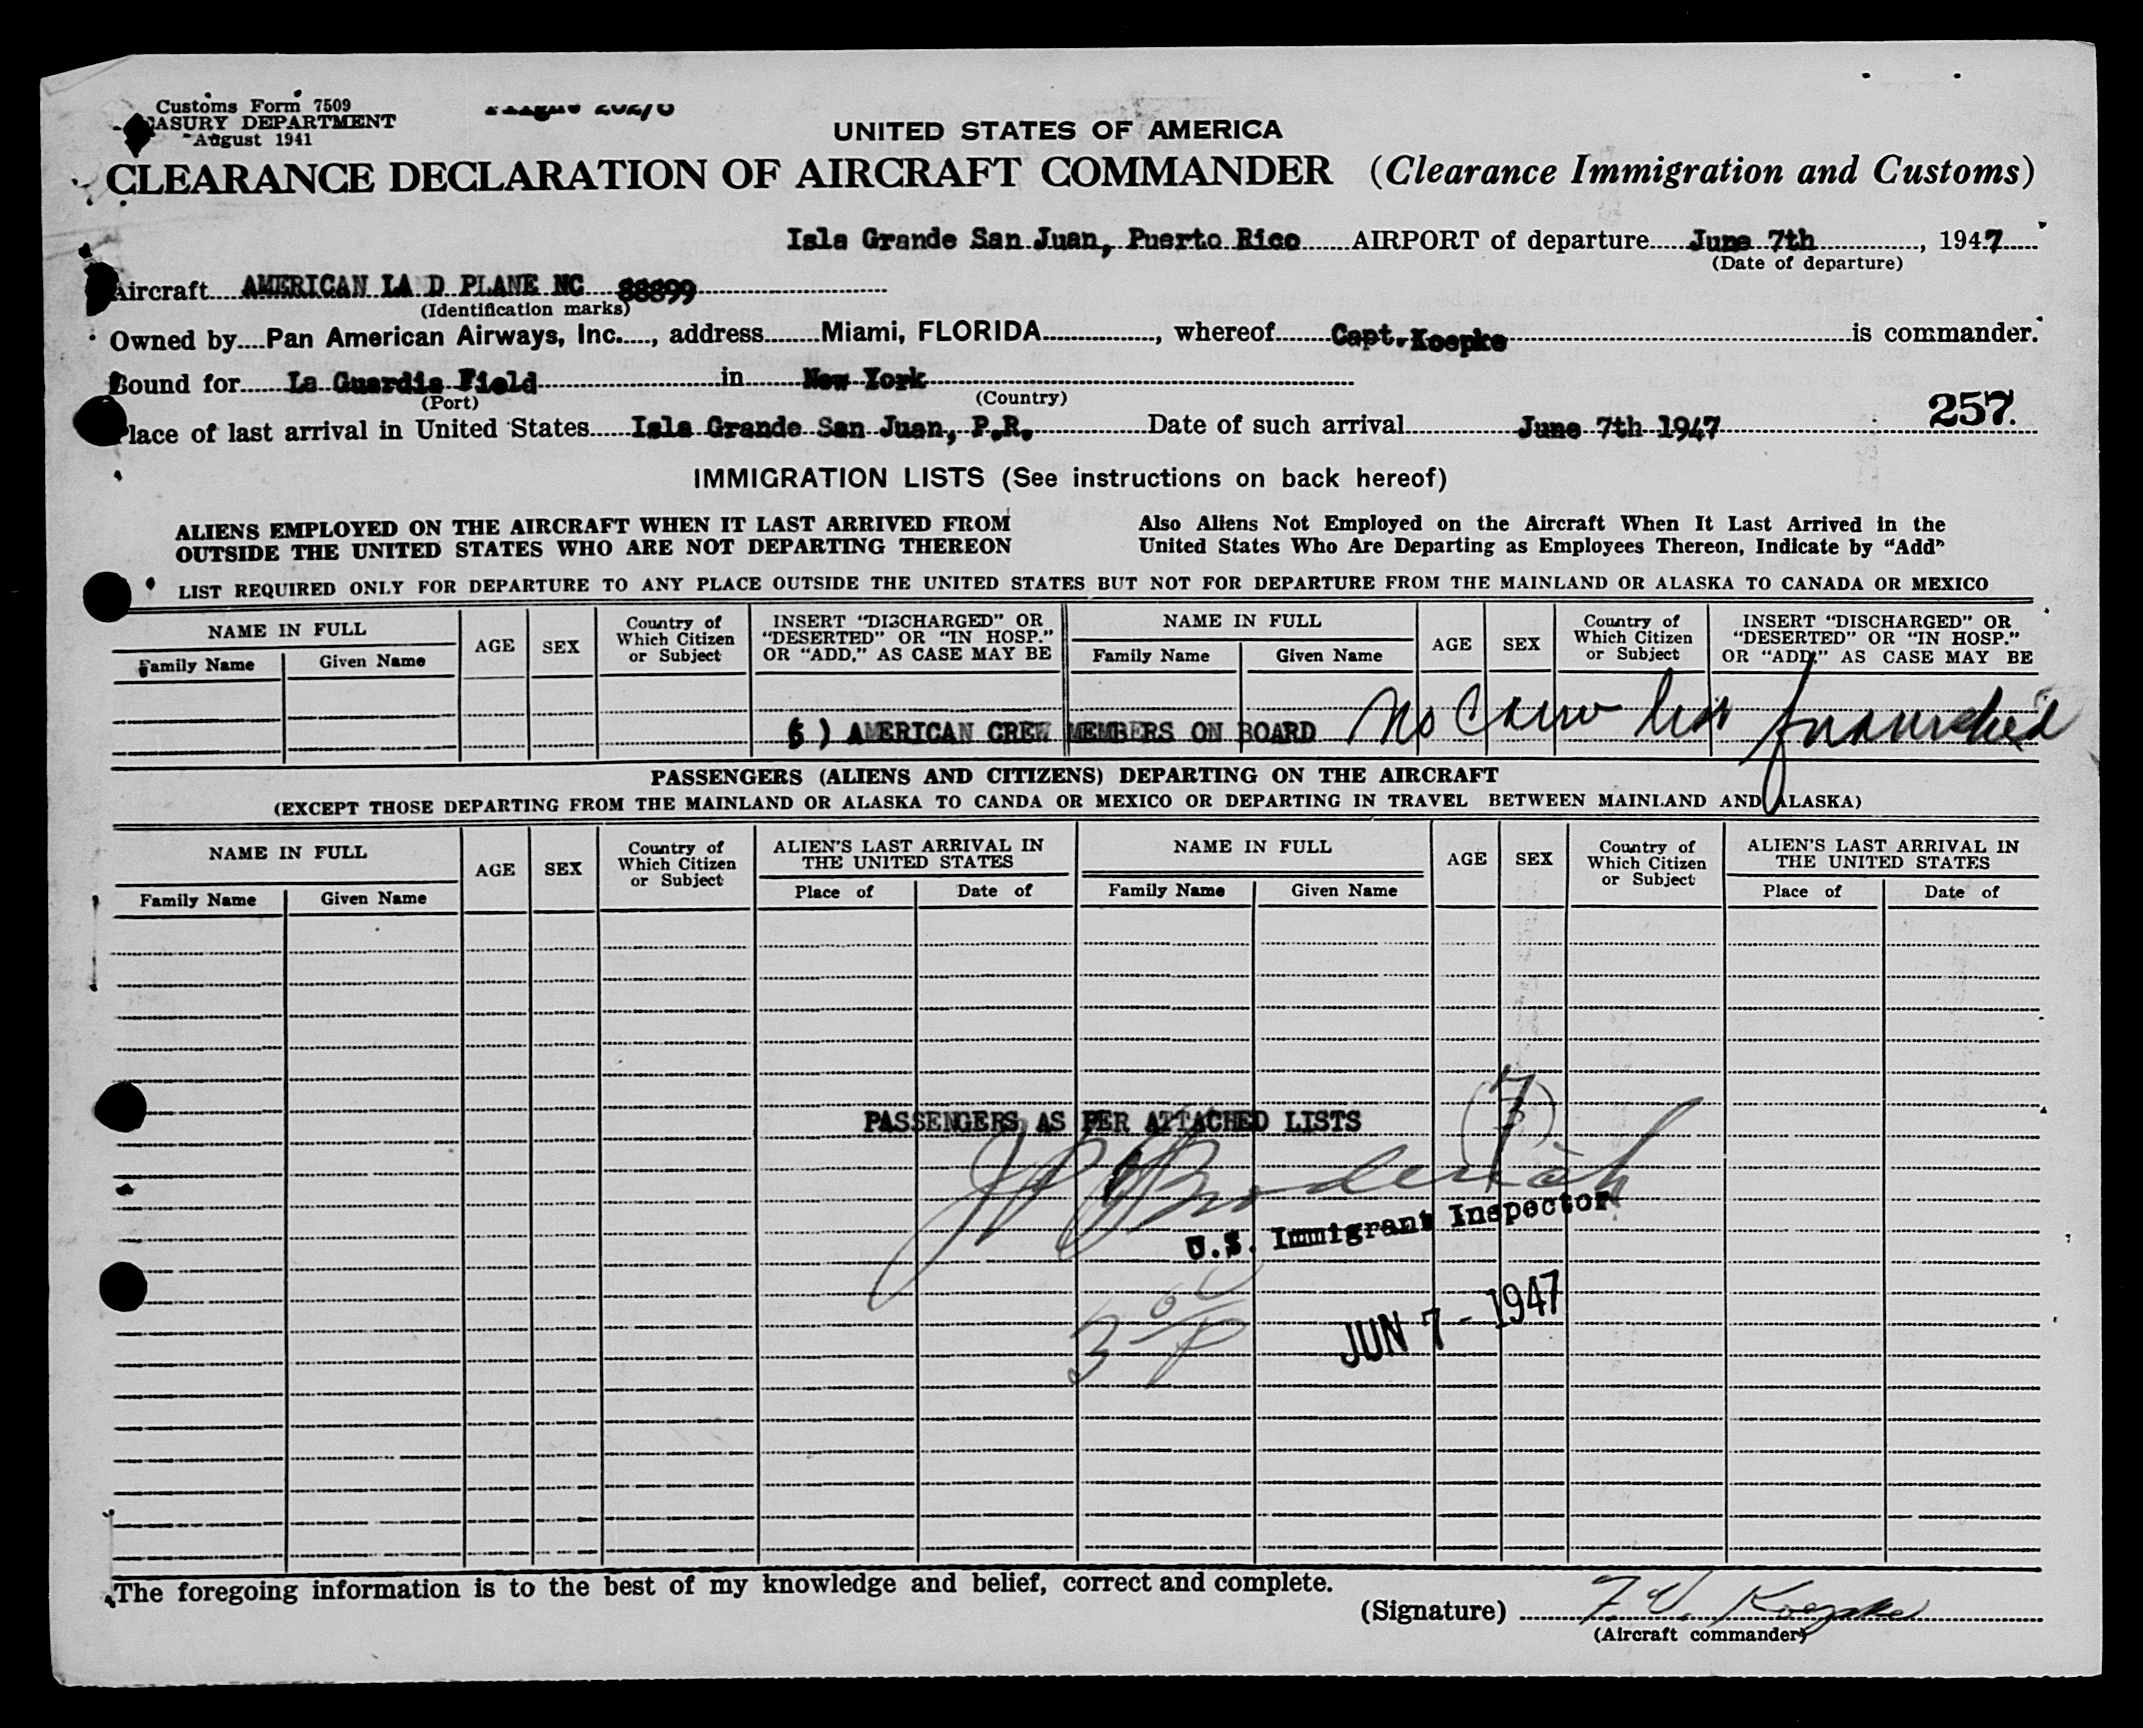 Customs Form 7509
ASURY DEPARTMENT
August 1941
UNITED STATES OF AMERICA
CLEARANCE DECLARATION OF AIRCRAFT COMMANDER (Clearance Immigration and Customs)
Isla Grande San Juan, Puerto Rico AIRPORT of departure June 7th, 1947
(Date of departure)
Aircraft AMERICAN LA D PLANE NC 88899
(Identification marks)
Owned by Pan American Airways, Inc., address Miami, FLORIDA, whereof Capt. Koepke is commander.
Bound for La Guardia Field in New York
(Port) (Country)
257.
Place of last arrival in United States Isla Grande San Juan, P.R. Date of such arrival June 7th 1947
IMMIGRATION LISTS (See instructions on back hereof)
ALIENS EMPLOYED ON THE AIRCRAFT WHEN IT LAST ARRIVED FROM
OUTSIDE THE UNITED STATES WHO ARE NOT DEPARTING THEREON
Also Aliens Not Employed on the Aircraft When It Last Arrived in the
United States Who Are Departing as Employees Thereon, Indicate by "Add"
LIST REQUIRED ONLY FOR DEPARTURE TO ANY PLACE OUTSIDE THE UNITED STATES BUT NOT FOR DEPARTURE FROM THE MAINLAND OR ALASKA TO CANADA OR MEXICO
NAME IN FULL
Family Name Given Name
AGE
SEX
Country of
Which Citizen
or Subject
INSERT "DISCHARGED" OR
"DESERTED" OR "IN HOSP."
OR "ADD," AS CASE MAY BE
NAME IN FULL
Family Name Given Name
AGE
SEX
Country of
Which Citizen
or Subject
INSERT "DISCHARGED" OR
"DESERTED" OR "IN HOSP."
OR "ADD," AS CASE MAY BE
) AMERICAN CREW MEMBERS ON BOARD No list
PASSENGERS (ALIENS AND CITIZENS) DEPARTING ON THE AIRCRAFT
(EXCEPT THOSE DEPARTING FROM THE MAINLAND OR ALASKA TO CANDA OR MEXICO OR DEPARTING IN TRAVEL BETWEEN MAINLAND AND ALASKA)
NAME IN FULL
Family Name Given Name
AGE
SEX
Country of
Which Citizen
or Subject
ALIEN'S LAST ARRIVAL IN
THE UNITED STATES
Place of Date of
NAME IN FULL
Family Name Given Name
AGE
SEX
Country of
Which Citizen
or Subject
ALIEN'S LAST ARRIVAL IN
THE UNITED STATES
Place of Date of
PASSENGERS AS PER ATTACHED LISTS (7)
U.S. Immigrant Inspector
JUN 7 - 1947
The foregoing information is to the best of my knowledge and belief, correct and complete.
(Signature) F. V. Koepke
(Aircraft commander)